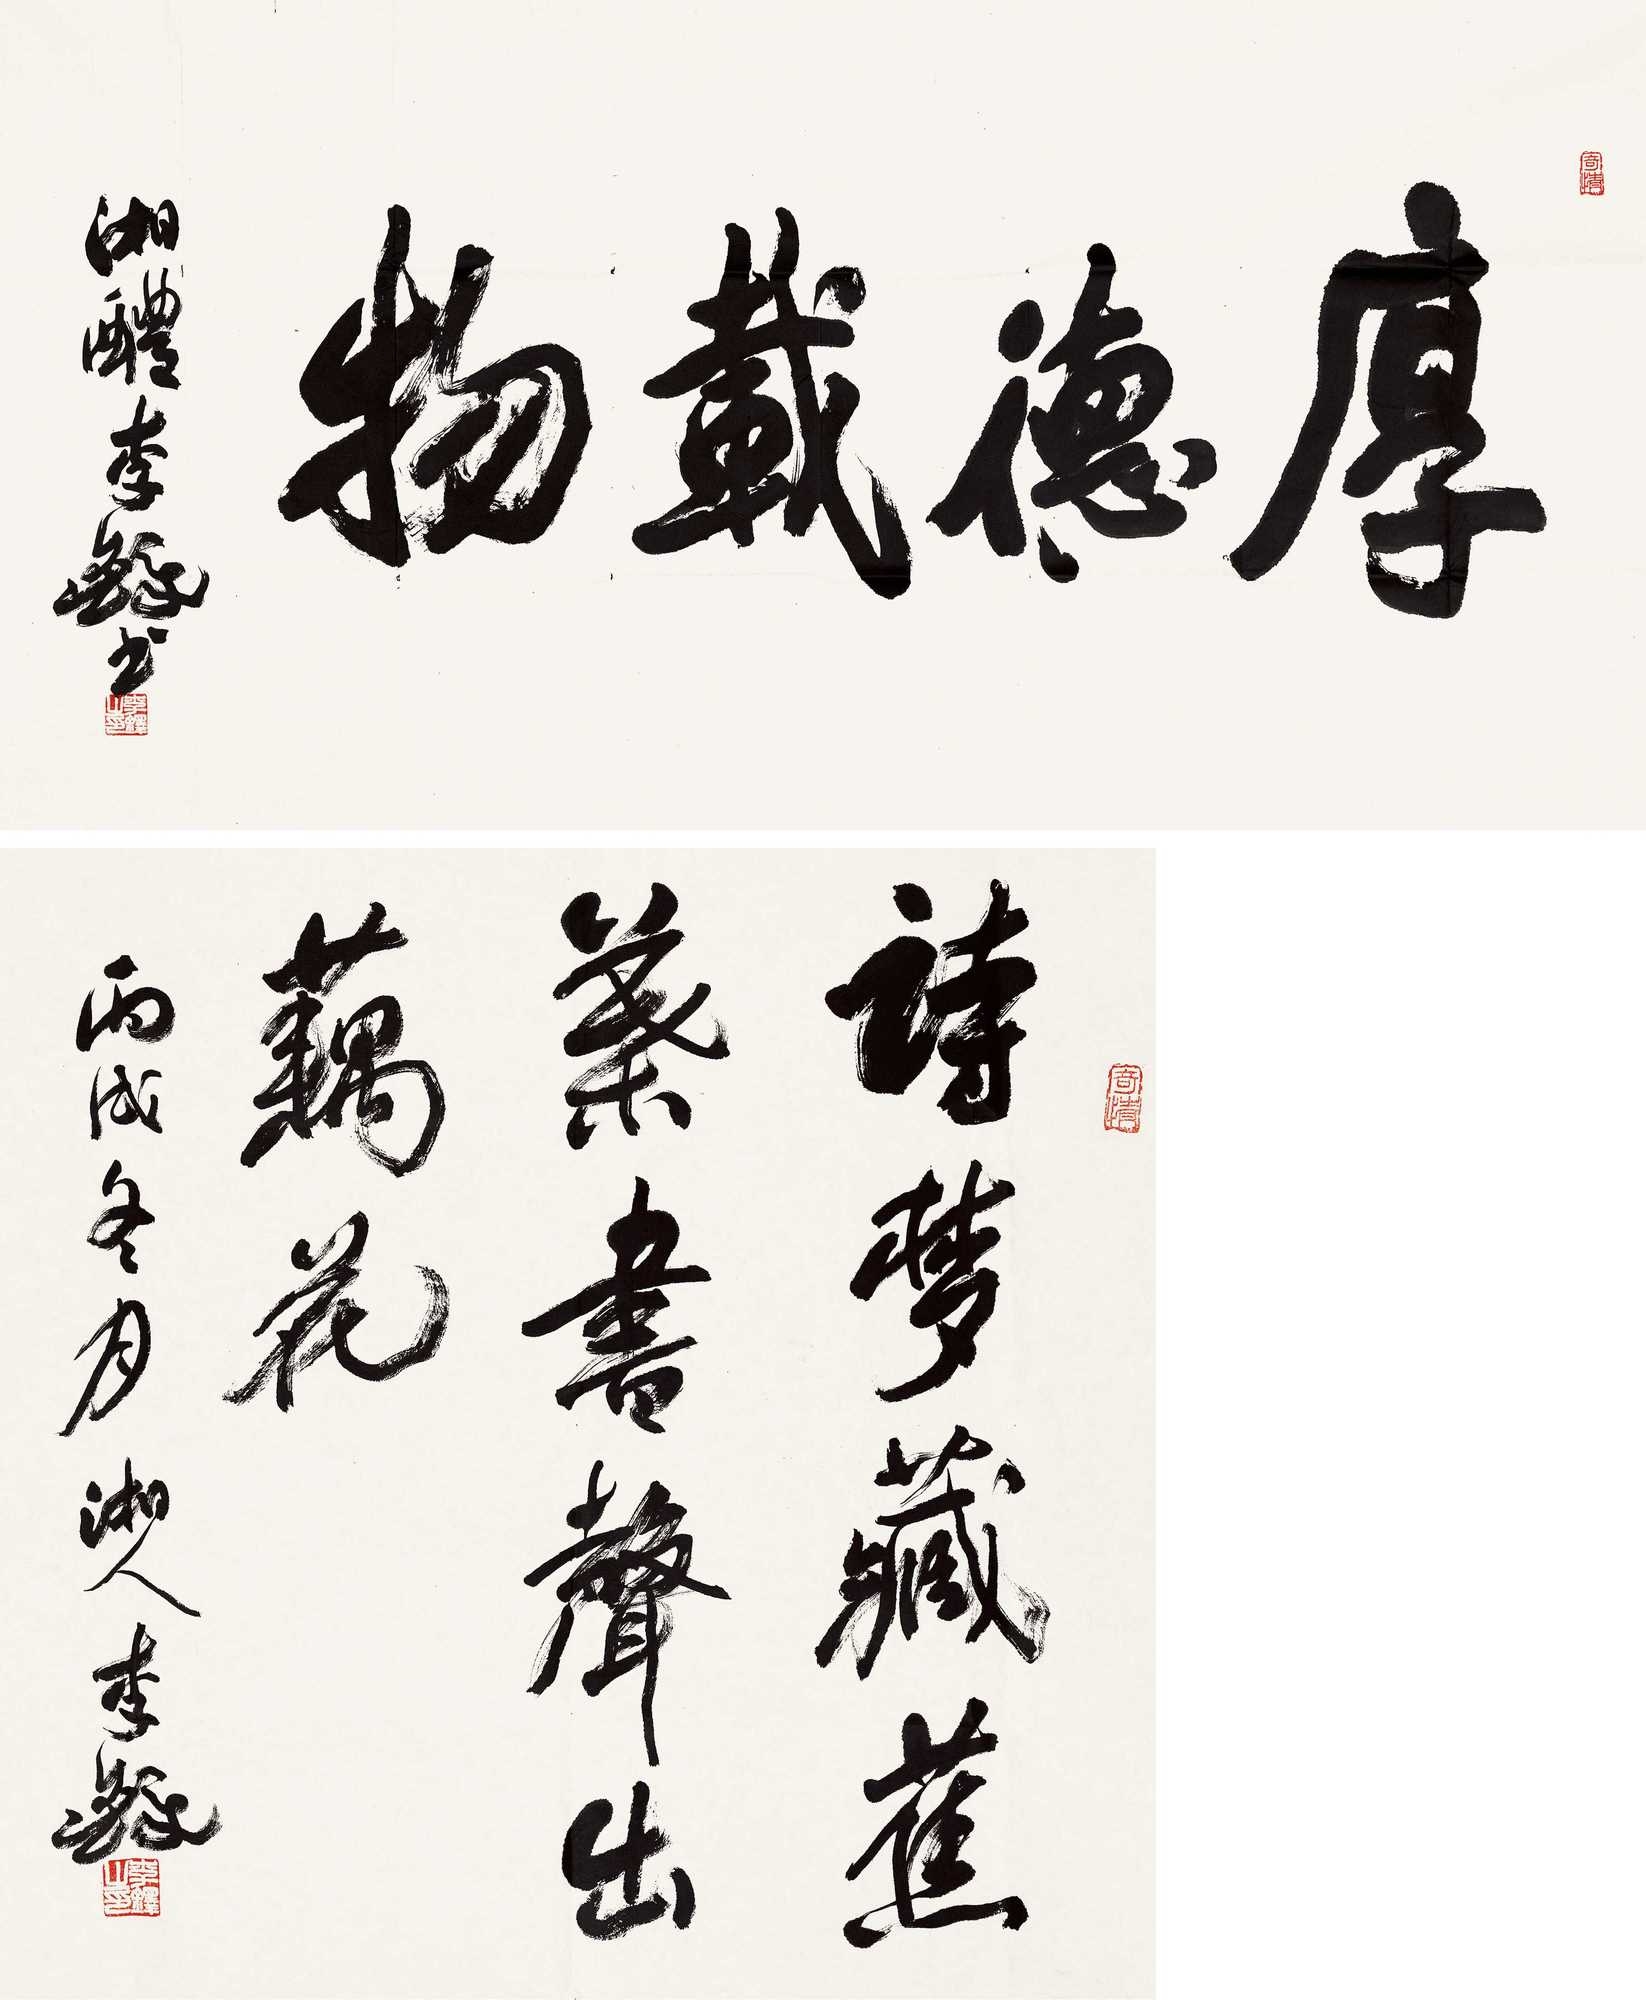 厚德載物
湘醴李鐸书
寄情
李鐸之印
詩梦藏蕉
葉書聲出
藕花
丙戌冬月湘人李鐸
寄情
李鐸之印